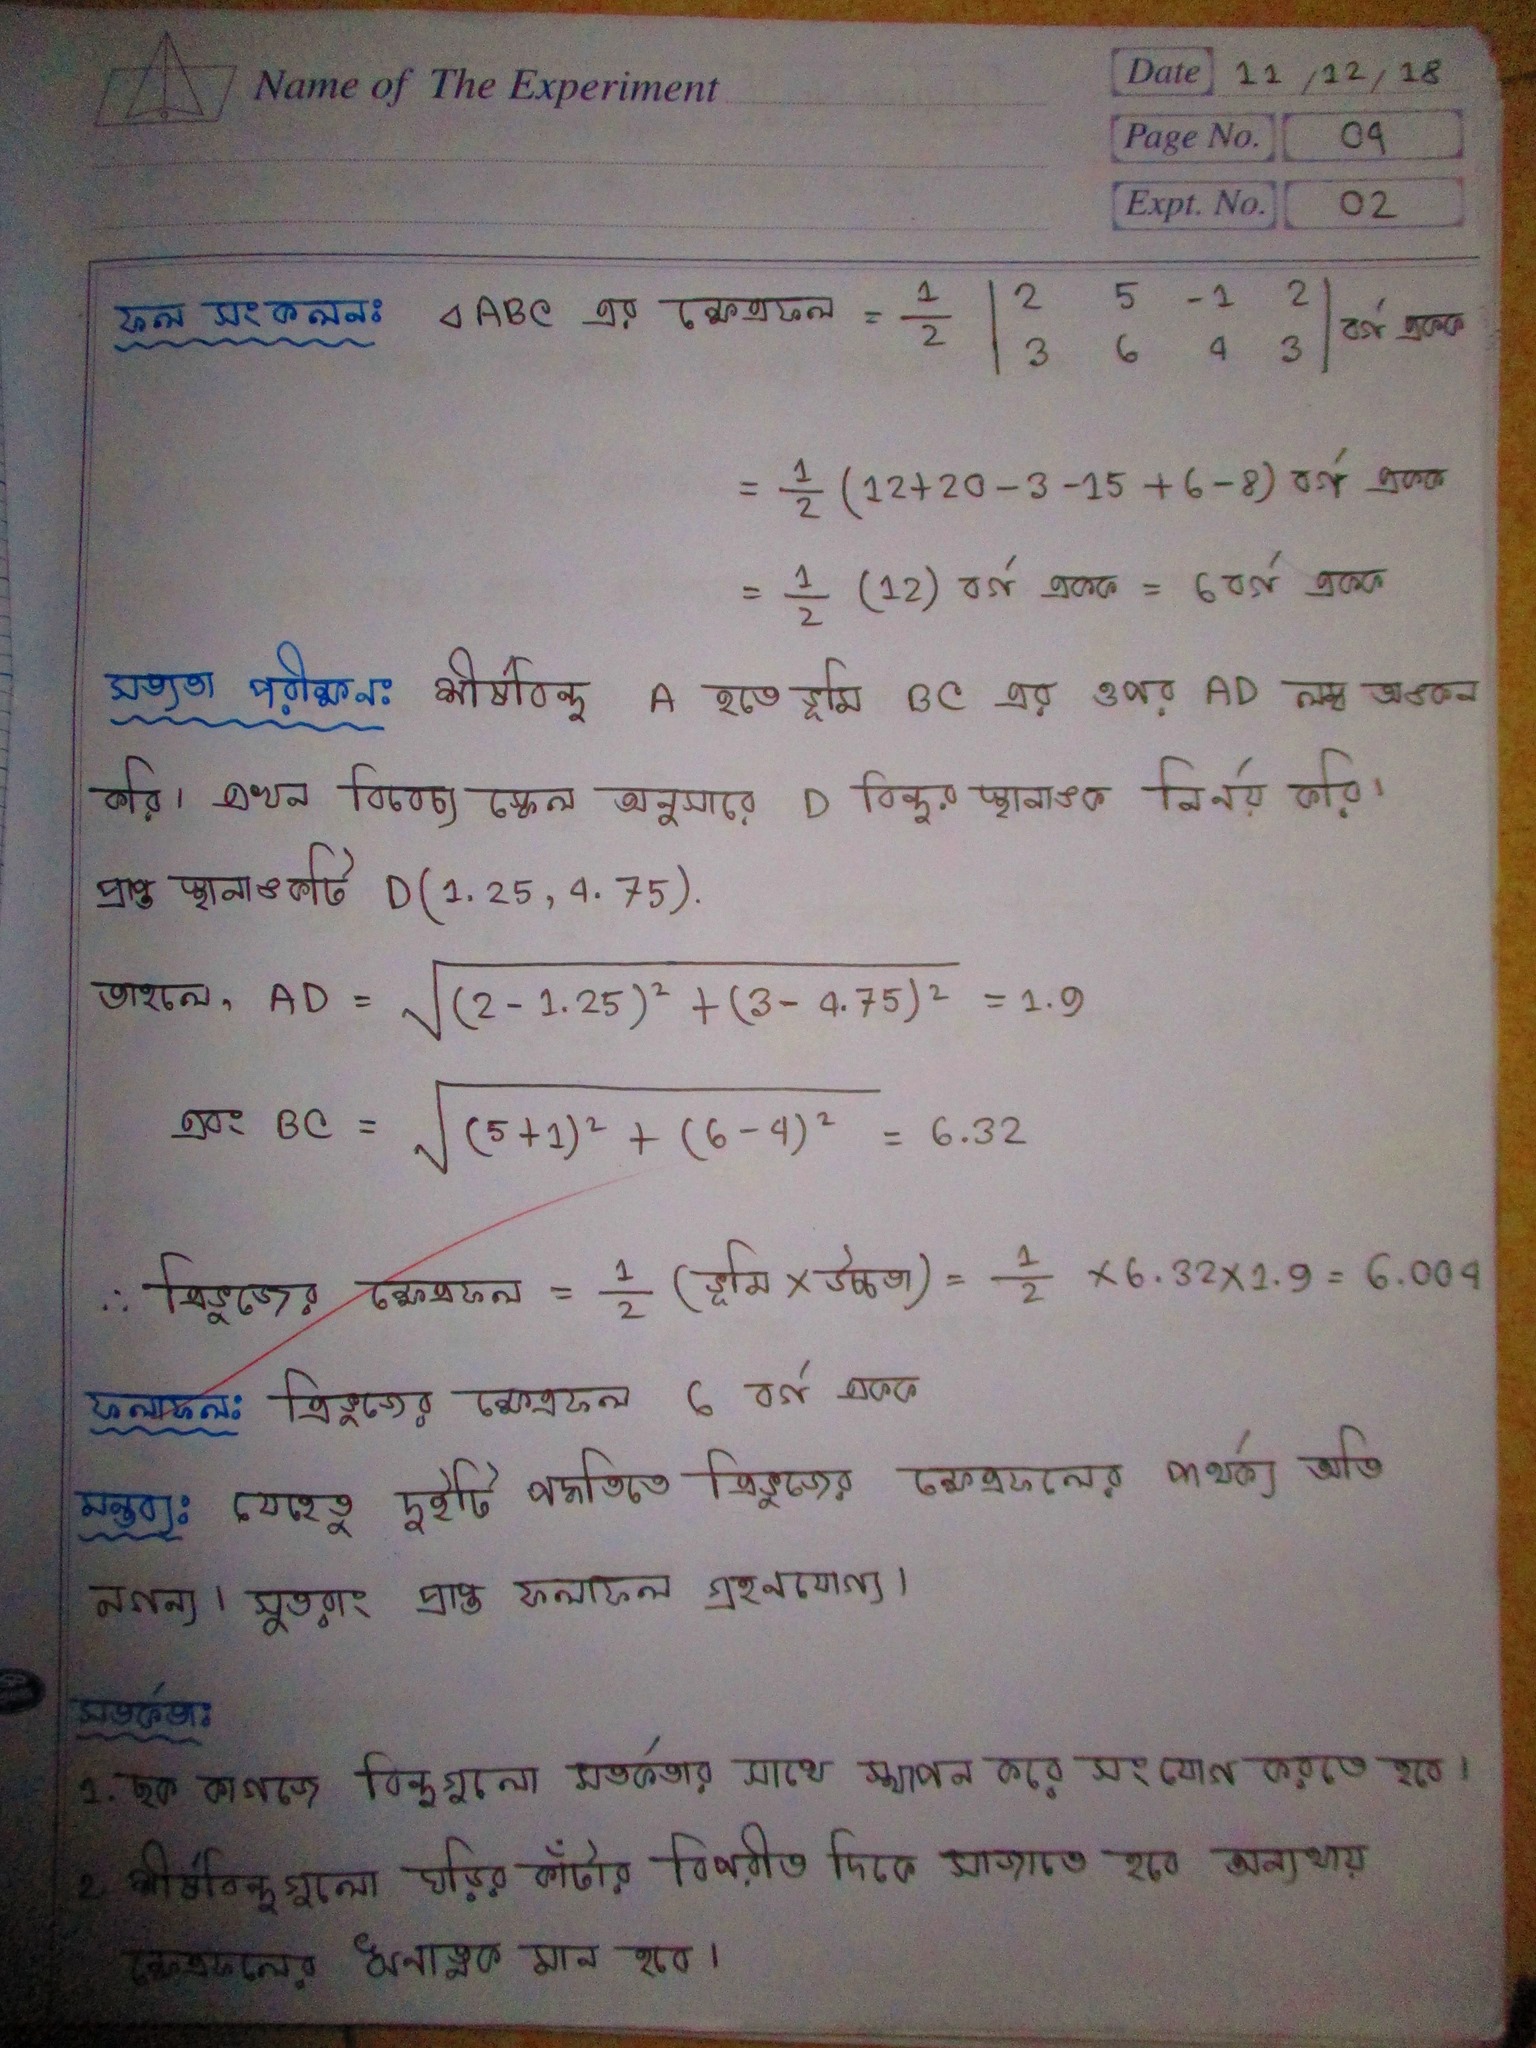 Name of The Experiment
Date 11/12/18
Page No. 04
Expt. No. 02
ফল সংকলনঃ △ABC এর ক্ষেত্রফল = 1/2 | 2 5 -1 2 | বর্গ একক
| 3 6 4 3 |
= 1/2 (12+20-3-15+6-8) বর্গ একক
= 1/2 (12) বর্গ একক = 6 বর্গ একক
সত্যতা পরীক্ষনঃ শীর্ষবিন্দু A হতে ভূমি BC এর ওপর AD লম্ব অঙকন
করি। এখন বিবেচ্য স্কেল অনুসারে D বিন্দুর স্থানাঙক নির্নয় করি।
প্রাপ্ত স্থানাঙকটি D(1.25, 4.75).
তাহলে, AD = √((2-1.25)² + (3-4.75)²) = 1.9
এবং BC = √((5+1)² + (6-4)²) = 6.32
∴ ত্রিভুজের ক্ষেত্রফল = 1/2 (ভূমি × উচ্চতা) = 1/2 × 6.32 × 1.9 = 6.004
ফলাফলঃ ত্রিভুজের ক্ষেত্রফল 6 বর্গ একক
মন্তব্যঃ যেহেতু দুইটি পদ্ধতিতে ত্রিভুজের ক্ষেত্রফলের পার্থক্য অতি
নগন্য। সুতরাং প্রাপ্ত ফলাফল গ্রহনযোগ্য।
সতর্কতাঃ
1. ছক কাগজে বিন্দুগুলো সতর্কতার সাথে স্থাপন করে সংযোগ করতে হবে।
2. শীর্ষবিন্দুগুলো ঘড়ির কাঁটার বিপরীত দিকে সাজাতে হবে অন্যথায়
ক্ষেত্রফলের ঋনাত্নক মান হবে।